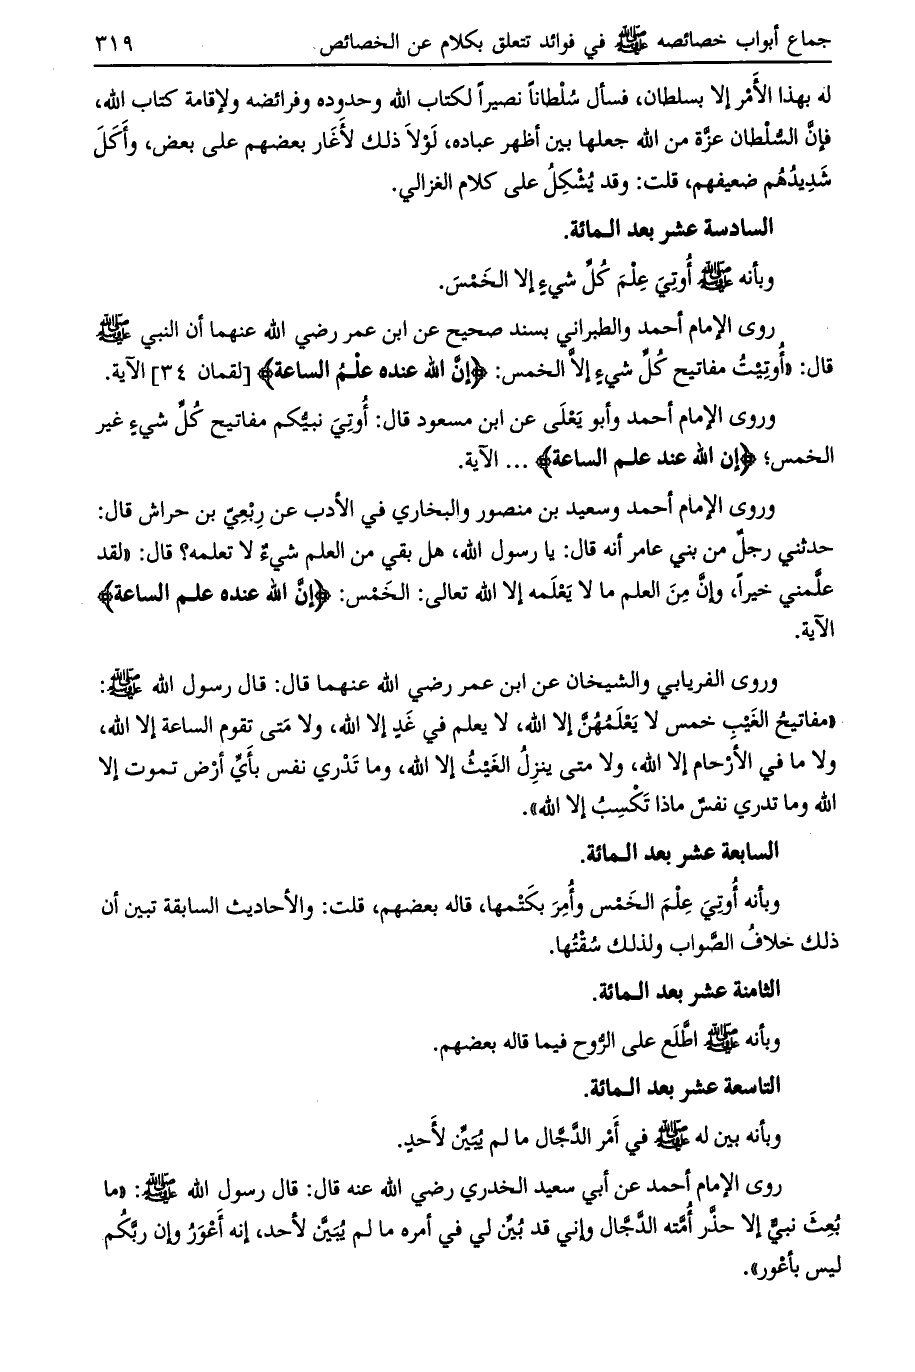 جماع أبواب خصائصه ﷺ في فوائد تتعلق بكلام عن الخصائص ٣١٩
له بهذا الأَمْر إلا بسلطان، فسأل سُلْطاناً نصيراً لكتاب الله وحدوده وفرائضه ولإقامة كتاب الله،
فإنَّ السُّلْطان عزَّة من الله جعلها بين أظهر عباده، لَوْلاَ ذلك لأَغار بعضهم على بعض، وأَكَلَ
شَدِيدُهُم ضعيفهم، قلت: وقد يُشْكِلُ على كلام الغزالي.
السادسة عشر بعد المائة.
وبأنه ﷺ أُوتِيَ عِلْمَ كُلِّ شيءٍ إلا الخَمْسَ.
روى الإمام أحمد والطبراني بسند صحيح عن ابن عمر رضي الله عنهما أن النبي ﷺ
قال: «أُوتِيْتُ مفاتيح كُلِّ شيءٍ إلاَّ الخمس: ﴿إنَّ الله عنده علْمُ الساعة﴾ [لقمان ٣٤] الآية.
وروى الإمام أحمد وأبو يَعْلَى عن ابن مسعود قال: أُوتِيَ نبيُّكم مفاتيح كُلِّ شيءٍ غير
الخمس؛ ﴿إن الله عند علم الساعة﴾ ... الآية.
وروى الإمام أحمد وسعيد بن منصور والبخاري في الأدب عن رِبْعِيّ بن حراش قال:
حدثني رجلٌ من بني عامر أنه قال: يا رسول الله، هل بقي من العلم شيءٌ لا تعلمه؟ قال: «لقد
علَّمني خيراً، وإنَّ مِنَ العلم ما لا يَعْلَمه إلا الله تعالى: الخَمْس: ﴿إنَّ الله عنده علم الساعة﴾
الآية.
وروى الفريابي والشيخان عن ابن عمر رضي الله عنهما قال: قال رسول الله ﷺ:
«مفاتيحُ الغَيْبِ خمس لا يَعْلَمُهُنَّ إلا الله، لا يعلم في غَدٍ إلا الله، ولا مَتى تقوم الساعة إلا الله،
ولا ما في الأرْحام إلا الله، ولا متى ينزِلُ الغَيْثُ إلا الله، وما تَدْري نفس بأَيِّ أرْض تموت إلا
الله وما تدري نفسٌ ماذا تَكْسِبُ إلا الله».
السابعة عشر بعد المائة.
وبأنه أُوتِيَ عِلْمَ الخَمْس وأُمِرَ بكَتْمها، قاله بعضهم، قلت: والأحاديث السابقة تبين أن
ذلك خلافُ الصَّواب ولذلك سُقْتُها.
الثامنة عشر بعد المائة.
وبأنه ﷺ اطَّلَع على الرُّوح فيما قاله بعضهم.
التاسعة عشر بعد المائة.
وبأنه بين له ﷺ في أَمْر الدَّجَّال ما لم يُبَيِّن لأَحدٍ.
روى الإمام أحمد عن أبي سعيد الخدري رضي الله عنه قال: قال رسول الله ﷺ: «ما
بُعِثَ نبيٌّ إلا حذَّر أُمَّته الدَّجَّال وإني قد بُيِّن لي في أمره ما لم يُبَيَّن لأحد، إنه أَعْوَرُ وإن ربَّكُم
ليس بأعْور».